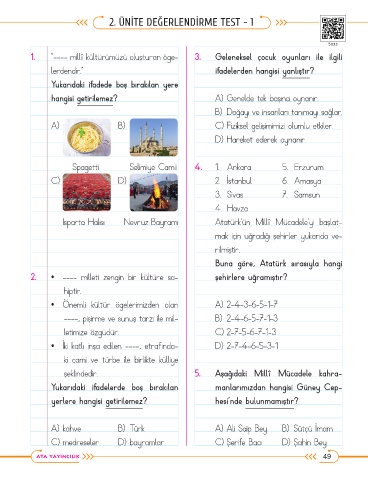 2. ÜNİTE DEĞERLENDİRME TEST - 1
1. "---- millî kültürümüzü oluşturan öge-
lerdendir."
Yukarıdaki ifadede boş bırakılan yere
hangisi getirilemez?
A)
B)
Spagetti
Selimiye Cami
C)
D)
Isparta Halısı
Nevruz Bayramı
2. • ---- milleti zengin bir kültüre sa-
hiptir.
• Önemli kültür ögelerimizden olan
----, pişirme ve sunuş tarzı ile mil-
letimize özgüdür.
• İki katlı inşa edilen ----, etrafında-
ki cami ve türbe ile birlikte külliye
şeklindedir.
Yukarıdaki ifadelerde boş bırakılan
yerlere hangisi getirilemez?
A) kahve
B) Türk
C) medreseler
D) bayramlar
3. Geleneksel çocuk oyunları ile ilgili
ifadelerden hangisi yanlıştır?
A) Genelde tek başına oynanır.
B) Doğayı ve insanları tanımayı sağlar.
C) Fiziksel gelişimimizi olumlu etkiler.
D) Hareket ederek oynanır.
4. 1. Ankara
5. Erzurum
2. İstanbul
6. Amasya
3. Sivas
7. Samsun
4. Havza
Atatürk'ün Millî Mücadele'yi başlat-
mak için uğradığı şehirler yukarıda ve-
rilmiştir.
Buna göre, Atatürk sırasıyla hangi
şehirlere uğramıştır?
A) 2-4-3-6-5-1-7
B) 2-4-6-5-7-1-3
C) 2-7-5-6-7-1-3
D) 2-7-4-6-5-3-1
5. Aşağıdaki Millî Mücadele kahra-
manlarımızdan hangisi Güney Cep-
hesi'nde bulunmamıştır?
A) Ali Saip Bey
B) Sütçü İmam
C) Şerife Bacı
D) Şahin Bey
ATA YAYINCILIK
49